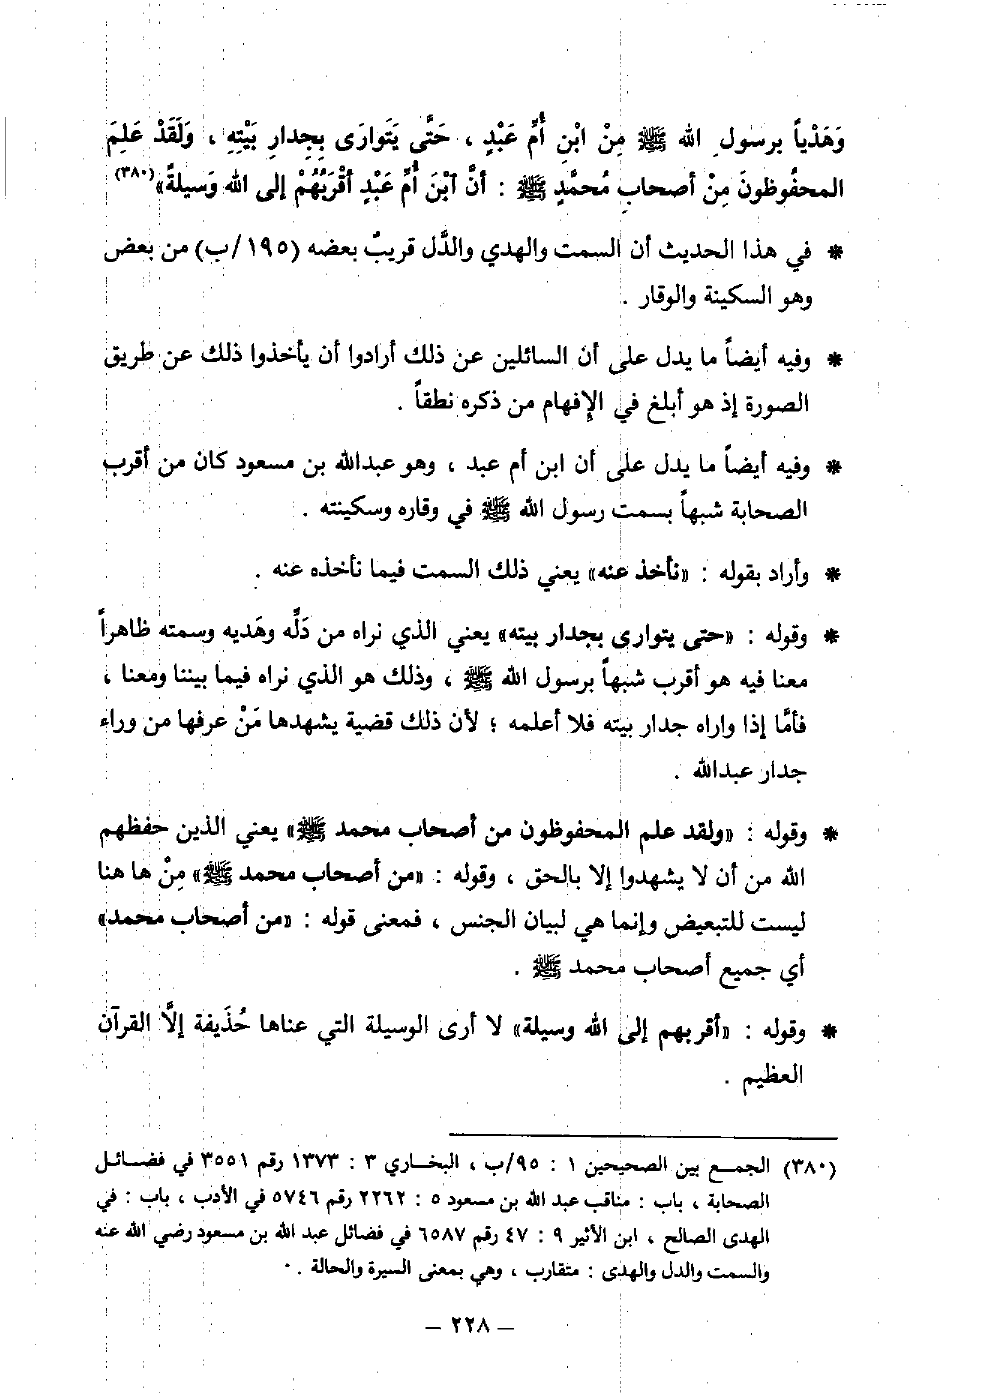 وَهَدْياً برسولِ الله ﷺ مِنْ ابْنِ أُمِّ عَبْدٍ ، حَتَّى يَتَوارَى بِجِدارِ بَيْتِهِ ، وَلَقَدْ عَلِمَ
المحفُوظونَ مِنْ أصحابِ مُحمَّدٍ ﷺ : أنَّ ٱبْنَ أُمِّ عَبْدٍ أقْرَبُهُمْ إلى الله وَسيلةً» (٣٨٠)
* في هذا الحديث أن السمت والهدي والدَّل قريبٌ بعضه (١٩٥/ب) من بعض
وهو السكينة والوقار .
* وفيه أيضاً ما يدل على أن السائلين عن ذلك أرادوا أن يأخذوا ذلك عن طريق
الصورة إذ هو أبلغ في الإفهام من ذكره نطقاً .
* وفيه أيضاً ما يدل على أن ابن أم عبد ، وهو عبدالله بن مسعود كان من أقرب
الصحابة شبهاً بسمت رسول الله ﷺ في وقاره وسكينته .
* وأراد بقوله : «نأخذ عنه» يعني ذلك السمت فيما نأخذه عنه .
* وقوله : «حتى يتوارى بجدار بيته» يعني الذي نراه من دَلِّه وهَديه وسمته ظاهراً
معنا فيه هو أقرب شبهاً برسول الله ﷺ ، وذلك هو الذي نراه فيما بيننا ومعنا ،
فأمَّا إذا واراه جدار بيته فلا أعلمه ؛ لأن ذلك قضية يشهدها مَنْ عرفها من وراء
جدار عبدالله .
* وقوله : «ولقد علم المحفوظون من أصحاب محمد ﷺ» يعني الذين حفظهم
الله من أن لا يشهدوا إلا بالحق ، وقوله : «من أصحاب محمد ﷺ» مِنْ ها هنا
ليست للتبعيض وإنما هي لبيان الجنس ، فمعنى قوله : «من أصحاب محمد»
أي جميع أصحاب محمد ﷺ .
* وقوله : «أقربهم إلى الله وسيلة» لا أرى الوسيلة التي عناها حُذَيفة إلَّا القرآن
العظيم .
(٣٨٠) الجمـع بين الصحيحين ١ : ٩٥/ب ، البخـاري ٣ : ١٣٧٣ رقم ٣٥٥١ في فضـائـل
الصحابة ، باب : مناقب عبد الله بن مسعود ٥ : ٢٢٦٢ رقم ٥٧٤٦ في الأدب ، باب : في
الهدى الصالح ، ابن الأثير ٩ : ٤٧ رقم ٦٥٨٧ في فضائل عبد الله بن مسعود رضي الله عنه
والسمت والدل والهدى : متقارب ، وهي بمعنى السيرة والحالة .
– ٢٢٨ –